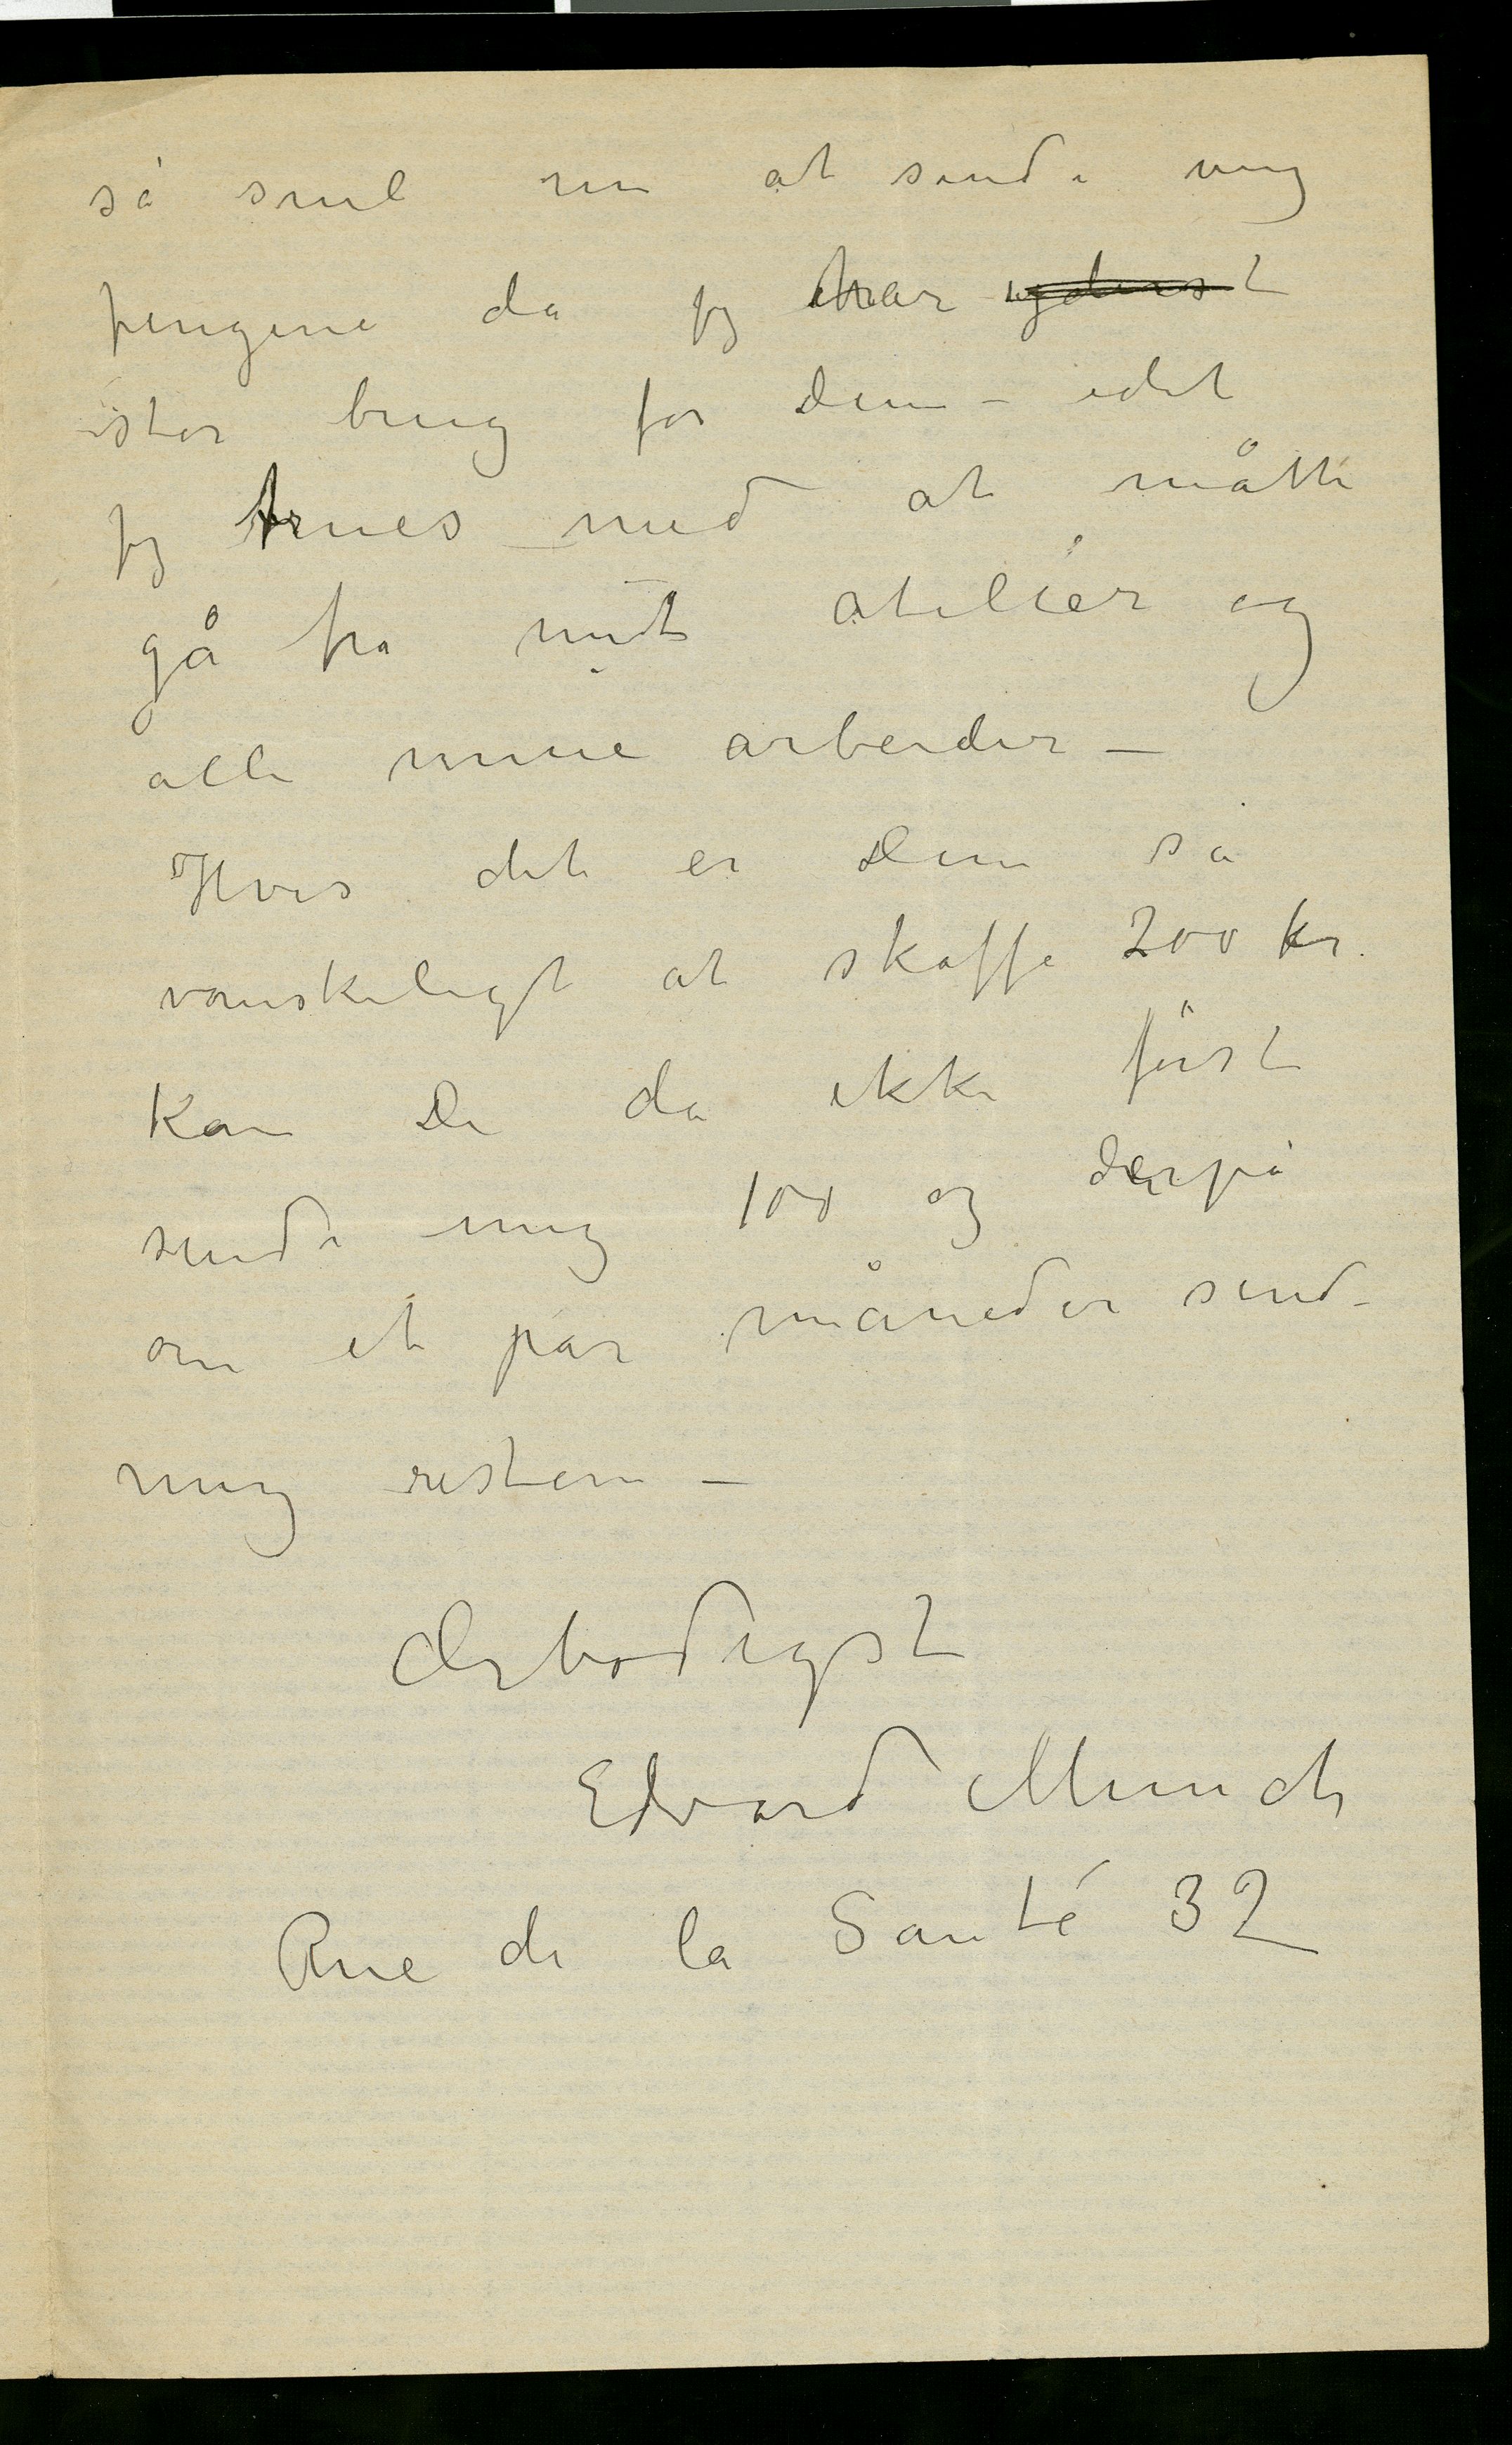 så snil nu at sende mig
pengene da jeg har yderst
stor brug for dem – idet
jeg trues med at måtte
gå fra mit atelier og
alle mine arbeider –
Hvis det er Dem så
vanskeligt at skaffe 200 kr.
Kan De da ikke først
sende mig 100 og derpå
om et par måneder send
mig resten –
Ærbødigst
Edvard Munch
Rue de la Santé 32